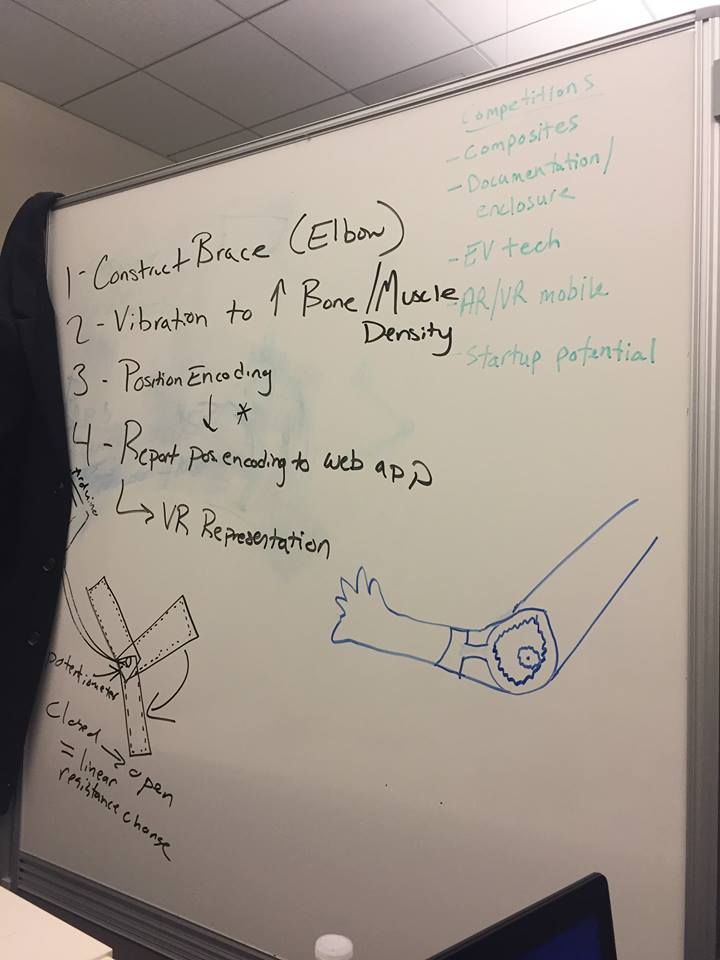 Competitions
- Composites
- Documentation/
enclosure
- EV tech
- AR/VR mobile
- Startup potential
1 - Construct Brace (Elbow)
2 - Vibration to ↑ Bone/Muscle
Density
3 - Position Encoding
↓ *
4 - Report pos. encoding to web app
↳ VR Representation
Arduino
Potentiometer
Closed → open
= linear
resistance change